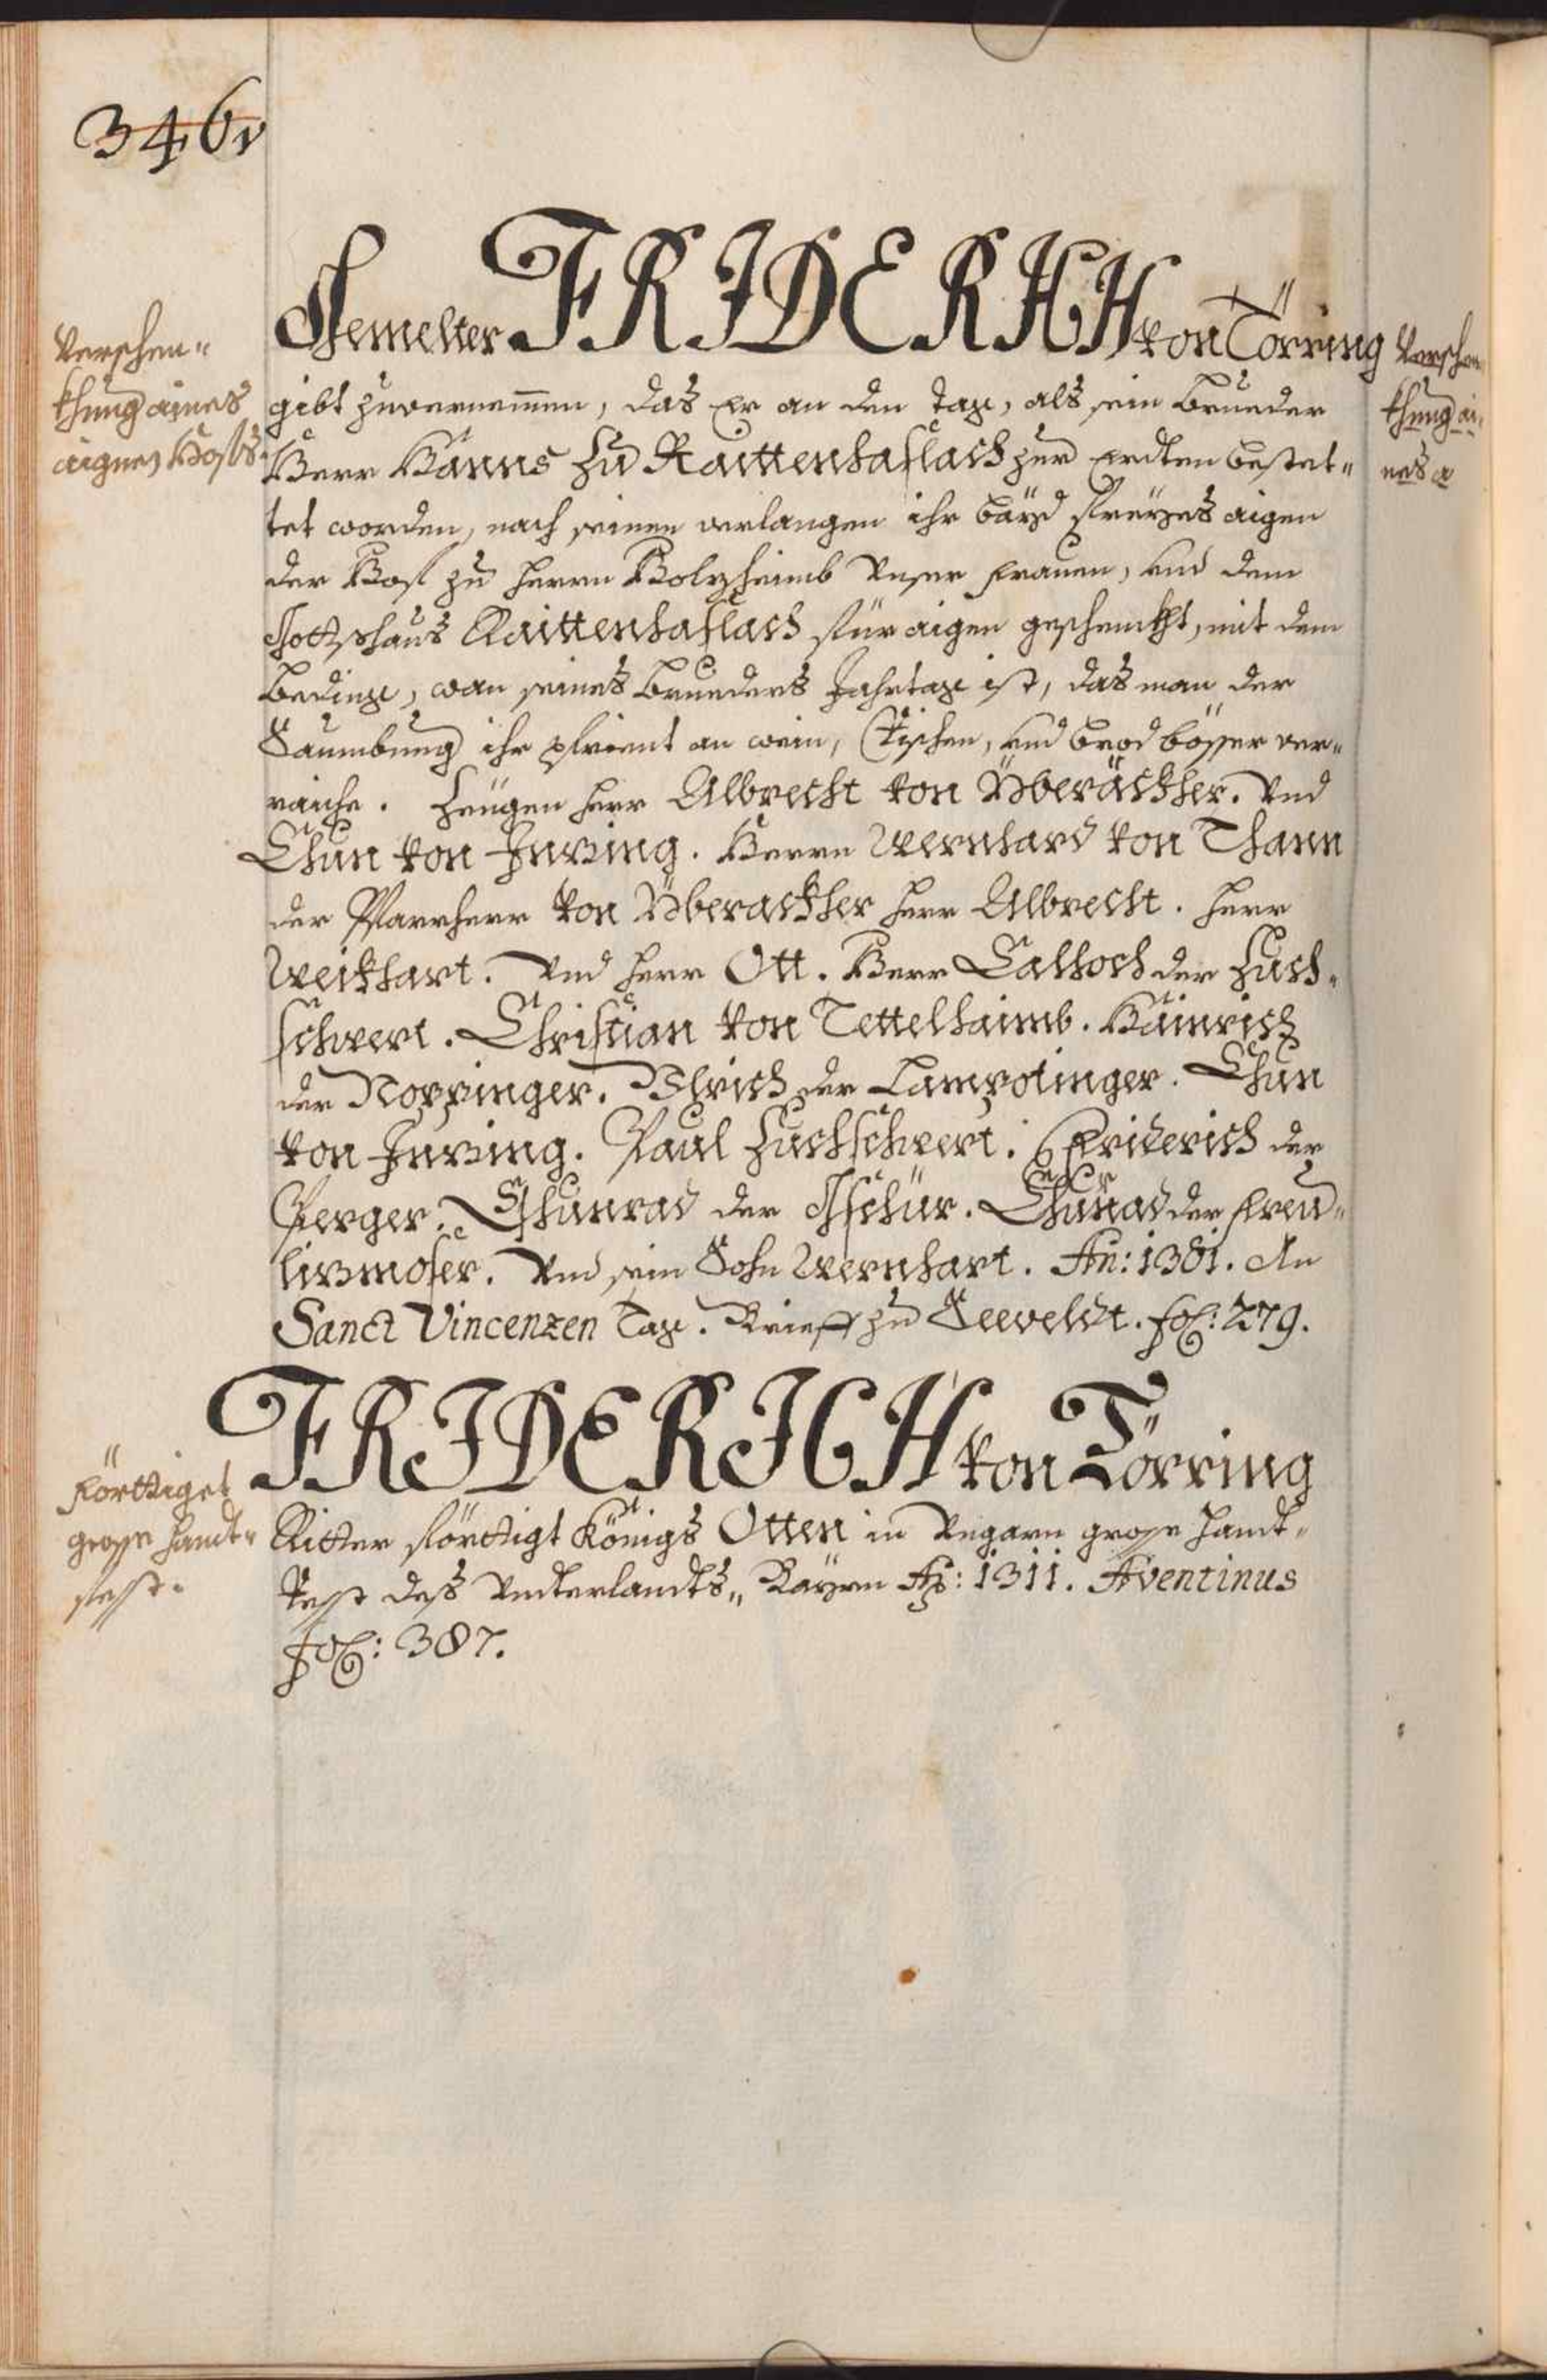 346v
Verschen-
khung aines
aignes Hoffs.
Gemelter FRIDERICH von Törring
gibt zuvernemmen, das Er an den tag, als sein Brueder
Herr Hanns zu Raittenhaslach zur Erdten bestat-
tet worden, nach seinen verlangen ihr bayd freyes aigen
der Hof zu Herrn Holzhaimb Unser Frauen, und dem
Gottshaus Raittenhaslach für aigen geschenkht, mit dem
beding, wan seines Brueders Jahrtag ist, das man der
Saumbung ihr pfrient an wein, Fischen, und brod bösser ver-
raiche. Zeugen Herr Albrecht von Überäckher. Und
Chun von Inzing. Herrn Wernhard von Thann
der Pfarrherr von Überackher Herr Albrecht. Herr
Weikhart. Und Herr Ott. Herr Calhoch der Zuch-
schwert. Christian von Tettelhaimb. Hainrich
der Noppinger. Ulrich der Lampotinger. Chun
von Inzing. Paul Zuchschwert. Friderich der
Perger. Chunrad der Gschür. Chunrad der Freu-
linzmoser. Und sein Sohn Wernhart. An: 1381. An
Sanct Vincenzen Tag. Brieff zu Seeveldt. fol: 279.
Verschen-
khung ai-
nes a
Förttiget
grosse Handt-
fest.
FRIDERICH von Törring
Ritter förttigt Königs Otten in Ungarn grosse Handt-
Fest dess Unterlandts" Bayrn Ao: 1311. Aventinus
fol: 387.